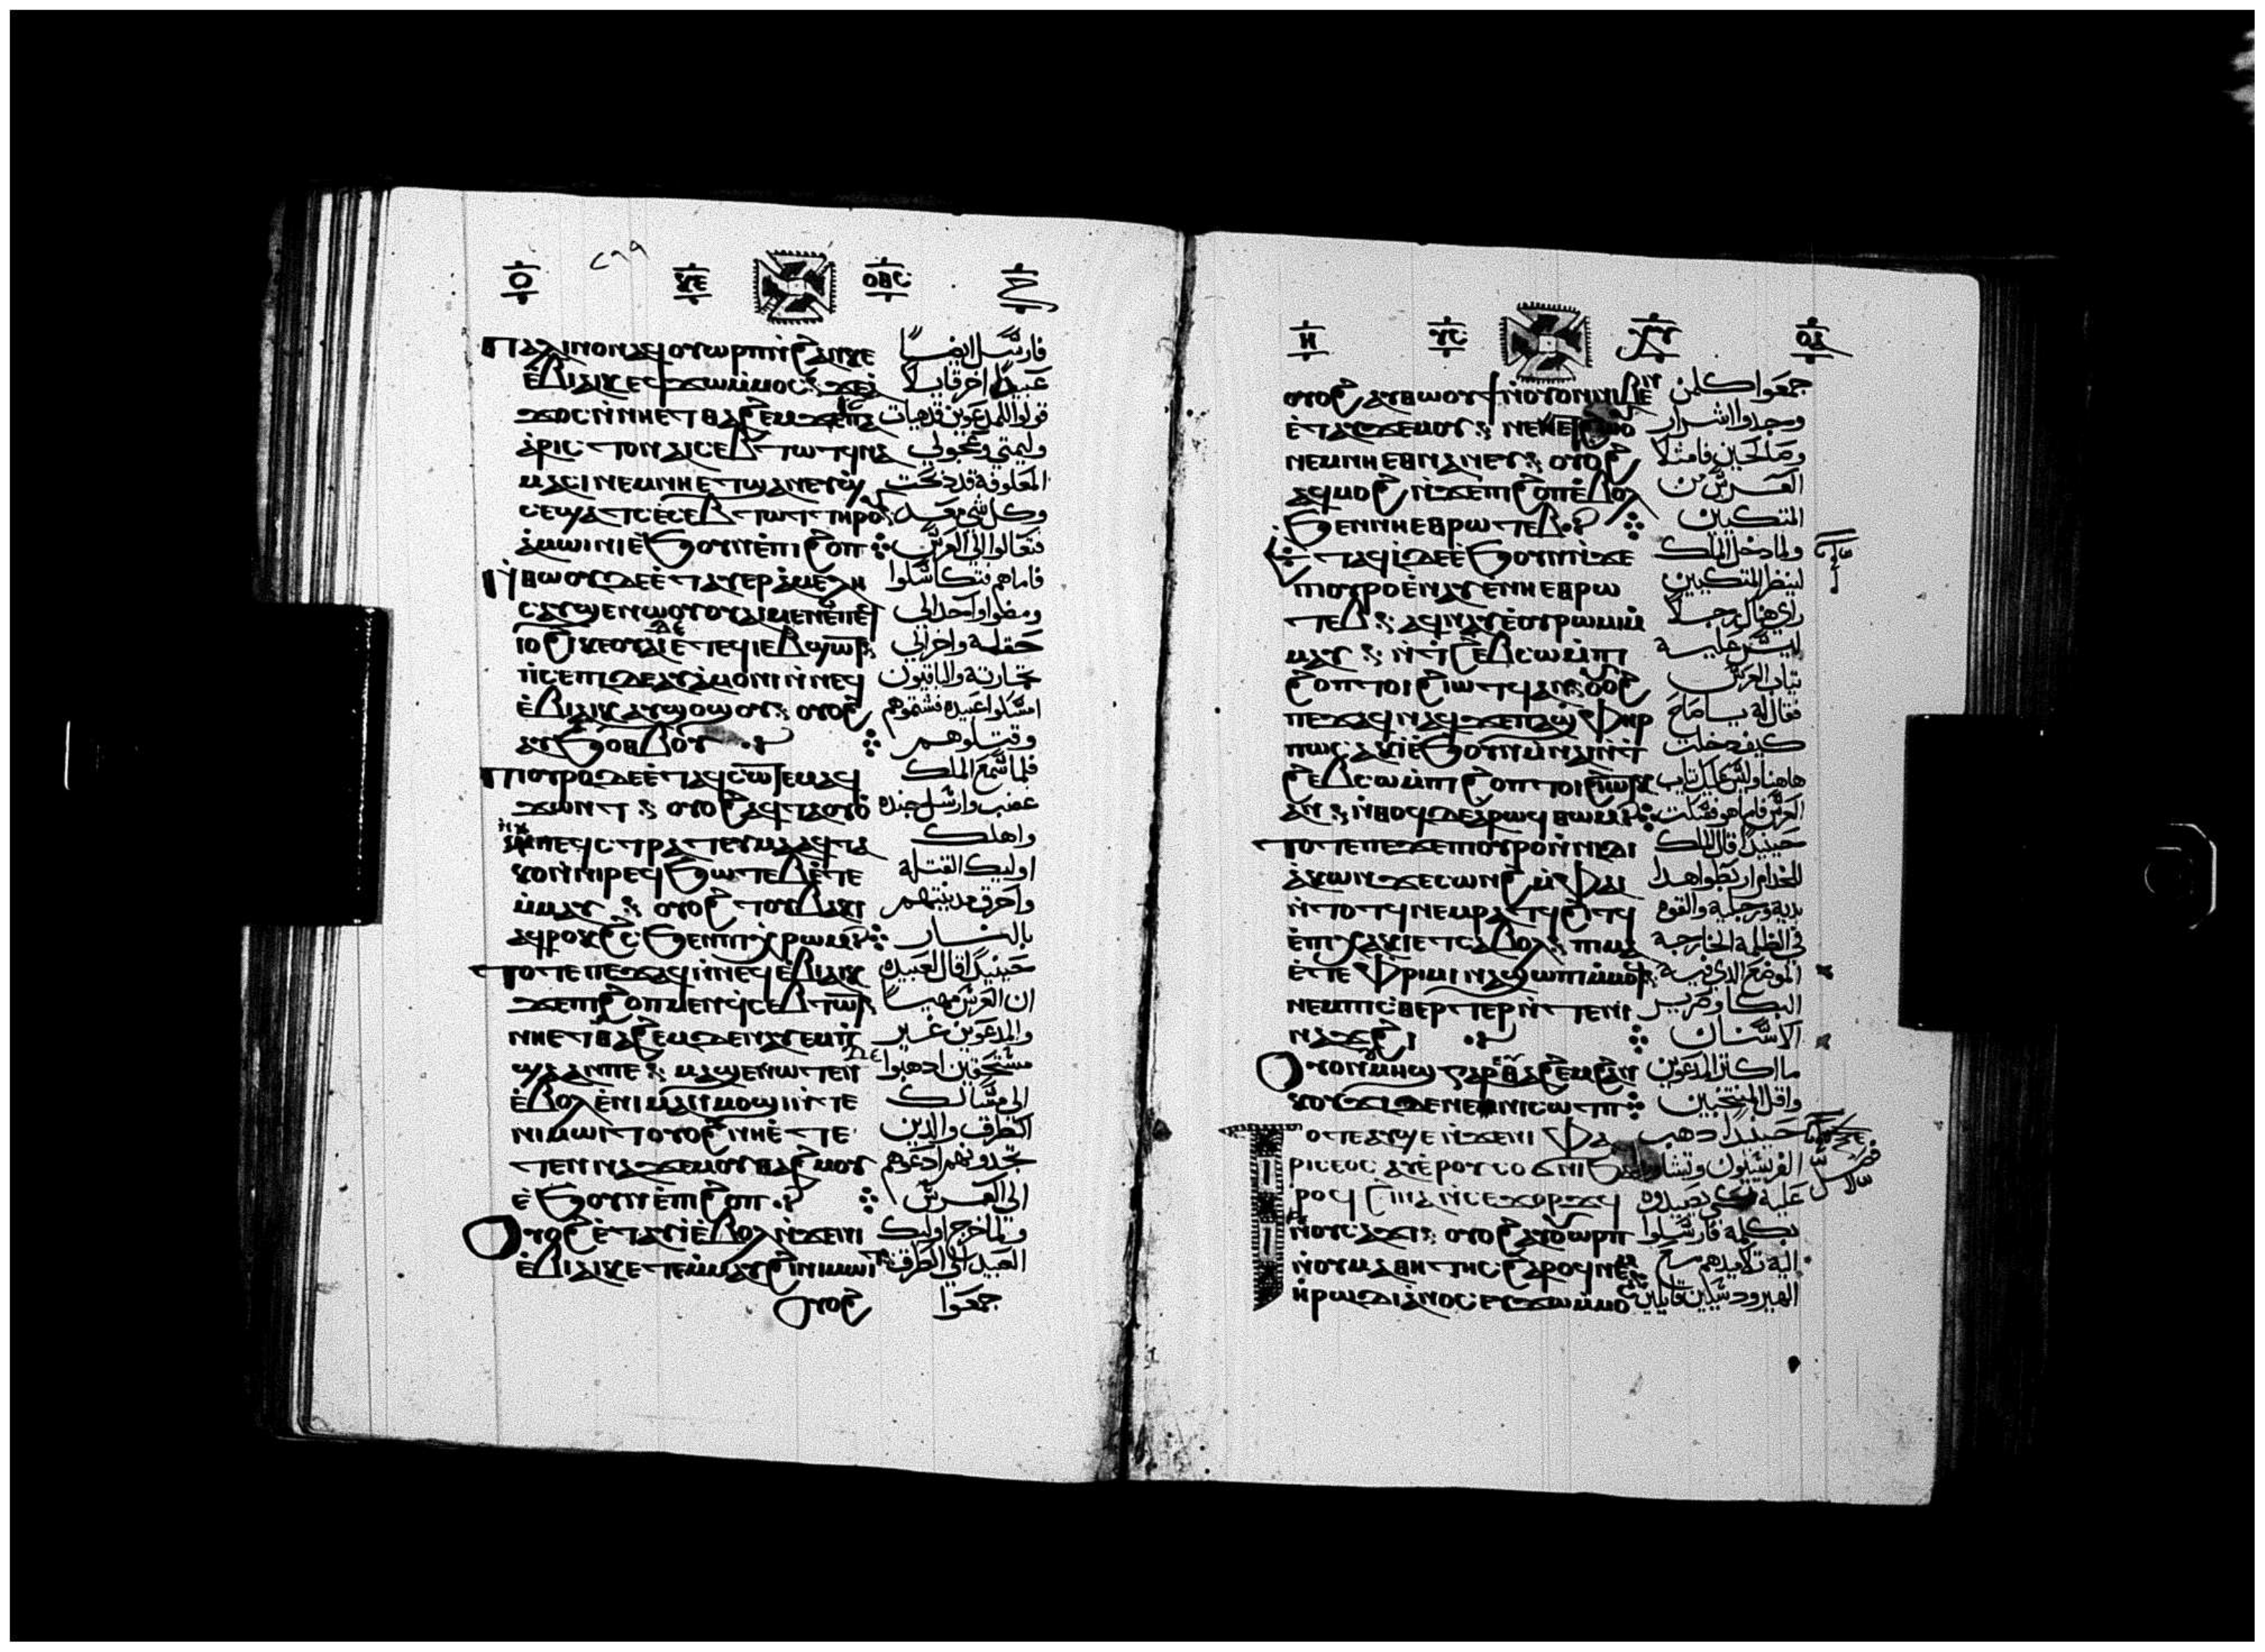 ⲡⲁⲗⲓⲛ ⲟⲛ ⲁϥⲟⲩⲱⲣⲡ ⲛ̀ϩⲁⲛⲕⲉ
ⲉ̀ⲃⲓⲁⲓⲕ ⲉϥϫⲱ ⲙ̀ⲙⲟⲥ ϫⲉ
ϫⲟⲥ ⲛ̀ⲛⲏⲉⲧⲑⲁϩⲉⲙ ϫⲉ ⲡⲁ
ⲁ̀ⲣⲓⲥⲧⲟⲛ ⲁⲓⲥⲉⲃⲧⲱⲧϥ ⲛⲁ
ⲙⲁⲥⲓ ⲛⲉⲙ ⲛⲏⲉⲧϣⲁⲛⲉⲩϣ
ⲥⲉϣⲁⲧ ⲥⲉⲥⲉⲃⲧⲱⲧ ⲧⲏⲣⲟⲩ
ⲁ̀ⲙⲱⲓⲛⲓ ⲉ̀ϧⲟⲩⲛ ⲉ̀ⲡⲓϩⲟⲡ
ⲛ̀ⲑⲱⲟⲩ ⲇⲉ ⲉ̀ⲧⲁⲩⲉⲣⲁ̀ⲙⲉⲗⲏⲥ
ⲁⲩϣⲉⲛⲱⲟⲩ ⲟⲩⲁⲓ ⲙⲉⲛ ⲉ̀ⲡⲉϥ
ⲓⲟϩⲓ ⲕⲉⲟⲩⲁⲓ ⲇⲉ ⲉ̀ⲧⲉϥⲓⲉⲃϣⲱⲧ
ⲡⲓⲥⲉⲡⲓ ⲇⲉ ⲁⲩⲁ̀ⲙⲟⲛⲓ ⲛ̀ⲛⲉϥ
ⲉ̀ⲃⲓⲁⲓⲕ ⲁⲩϣⲟϣⲟⲩ ⲟⲩⲟϩ
ⲁⲩϧⲟⲑⲃⲟⲩ
ⲡⲟⲩⲣⲟ ⲇⲉ ⲉ̀ⲧⲁϥⲥⲱⲧⲉⲙ ⲁϥ
ϫⲱⲛⲧ ⲟⲩⲟϩ ⲁϥⲧⲁⲟⲩⲟ̀
ⲛ̀ⲛⲉϥⲥⲧⲣⲁⲧⲉⲩⲙⲁ ⲁϥⲧⲁ
ⲕⲟ ⲛ̀ⲛⲓⲣⲉϥϧⲱⲧⲉⲃ ⲉ̀ⲧⲉ
ⲙ̀ⲙⲁⲩ ⲟⲩⲟϩ ⲧⲟⲩⲃⲁⲕⲓ
ⲁϥⲣⲟⲕϩⲥ ϧⲉⲛ ⲡⲓⲭⲣⲱⲙ
ⲧⲟⲧⲉ ⲡⲉϫⲁϥ ⲛ̀ⲛⲉϥⲉ̀ⲃⲓⲁⲓⲕ
ϫⲉ ⲡⲓϩⲟⲡ ⲙⲉⲛ ϥⲥⲉⲃⲧⲱⲧ
ⲛⲏⲉⲧⲑⲁϩⲉⲙ ⲇⲉ ⲛⲁⲩⲉⲙⲡ̀
ϣⲁ ⲁⲛ ⲡⲉ ⲙⲁϣⲉⲛⲱⲧⲉⲛ
ⲉ̀ⲃⲟⲗ ⲉ̀ⲛⲓⲙⲁⲛⲙⲟϣⲓ ⲛ̀ⲧⲉ
ⲛⲓⲙⲱⲓⲧ ⲟⲩⲟϩ ⲛⲏ ⲉ̀ⲧⲉ
ⲧⲉⲛⲛⲁϫⲉⲙⲟⲩ ⲑⲁϩⲙⲟⲩ
ⲉ̀ϧⲟⲩⲛ ⲉ̀ⲡⲓϩⲟⲡ
ⲟⲩⲟϩ ⲉ̀ⲧⲁⲩⲓ̀ ⲉ̀ⲃⲟⲗ ⲛ̀ϫⲉ ⲛⲓ
ⲉ̀ⲃⲓⲁⲓⲕ ⲉⲧⲉⲙ̀ⲙⲁⲩ ϩⲓ ⲛⲓⲙⲱⲓⲧ
ⲟⲩⲟϩ
فارسل ايضاً
عبيداً اخر قايلاً
قولوا للمدعوين قد هيات
وليمتي وعجولي
المعلوفة قد ذبحت
وكل شي معد
فتعالوا الي العرس
فاما هم فتكاسلوا
ومضوا واحد الي
حقله واخر الي
تجارته والباقيون
امسكوا عبيده فشتموهم
وقتلوهم
فلما سمع الملك
غضب وارسل جنده
واهلك
اوليك القتلة
واحرق مدينتهم
بالنار
حينيذ قال لعبيده
ان العرس مهيا
والمدعوين غير
مستحقين اذهبوا
الي مسالك
الطرق والذين
تجدونهم ادعوهم
الي العرس
فلما خرج اوليك
العبيد الي الطرق
جمعوا
ⲟⲩⲟϩ ⲁⲩⲑⲱⲟⲩϯ ⲛ̀ⲟⲩⲟⲛ ⲛⲓⲃⲉⲛ
ⲉ̀ⲧⲁⲩϫⲉⲙⲟⲩ
ⲛⲉⲙ ⲛⲏⲉⲑⲛⲁⲛⲉⲩ ⲟⲩⲟϩ
ⲁϥⲙⲟϩ ⲛ̀ϫⲉ ⲡⲓϩⲟⲡ ⲉ̀ⲃⲟⲗ
ϧⲉⲛ ⲛⲏⲉⲑⲣⲱⲧⲉⲃ
ⲉⲧⲁϥⲓ̀ ⲇⲉ ⲉ̀ϧⲟⲩⲛ ⲛ̀ϫⲉ
ⲡⲟⲩⲣⲟ ⲉ̀ⲛⲁⲩ ⲉ̀ⲛⲏⲉⲑⲣⲱ
ⲧⲉⲃ ⲁϥⲛⲁⲩ ⲉ̀ⲟⲩⲣⲱⲙⲓ ⲙ̀
ⲙⲁⲩ ⲛ̀ϯϩⲉⲃⲥⲱ ⲙ̀ⲡⲓ
ϩⲟⲡ ⲧⲟⲓ ϩⲓⲱⲧϥ ⲁⲛ ⲟⲩⲟϩ
ⲡⲉϫⲁϥ ⲛⲁϥ ϫⲉ ⲡⲁϣⲫⲏⲣ
ⲡⲱⲥ ⲁⲕⲓ̀ ⲉ̀ϧⲟⲩⲛ ⲙ̀ⲛⲁⲓ ⲛ̀ϯ
ϩⲉⲃⲥⲱ ⲙ̀ⲡⲓϩⲟⲡ ⲧⲟⲓ ϩⲓⲱⲧⲕ
ⲁⲛ ⲛ̀ⲑⲟϥ ⲇⲉ ⲁ̀ⲣⲱϥ ⲑⲱⲙ
ⲧⲟⲧⲉ ⲡⲉϫⲉ ⲡⲟⲩⲣⲟ ⲛ̀ⲛⲓⲇⲓ
ⲁ̀ⲕⲱⲛ ϫⲉ ⲥⲱⲛϩ ⲙ̀ⲫⲁⲓ
ⲛ̀ⲧⲟⲧϥ ⲛⲉⲙ ⲣⲁⲧϥ ϩⲓⲧϥ
ⲉ̀ⲡⲓⲭⲁⲕⲓ ⲉⲧⲥⲁⲃⲟⲗ ⲡⲓⲙⲁ
ⲉ̀ⲧⲉ ⲫⲣⲓⲙⲓ ⲛⲁϣⲱⲡⲓ ⲙ̀ⲙⲟϥ
ⲛⲉⲙ ⲡⲓⲥⲑⲉⲣⲧⲉⲣ ⲛ̀ⲧⲉ ⲛⲓ
ⲛⲁϫϩⲓ
ⲟⲩⲟⲛ ⲟⲩⲙⲏϣ ⲅⲁⲣ ⲑⲁϩⲉⲙ ϩⲁⲛ
ⲕⲟⲩϫⲓ ⲇⲉ ⲛⲉ ⲛⲓⲥⲱⲧⲡ
ⲧⲟⲧⲉ ⲁⲩϣⲉ ⲛ̀ϫⲉ ⲛⲓⲫⲁ
ⲣⲓⲥⲉⲟⲥ ⲁⲩⲉⲣⲟⲩⲥⲟϭⲛⲓ ϧⲁ
ⲣⲟϥ ϩⲓⲛⲁ ⲛ̀ⲥⲉϫⲟⲣϫϥ
ⲛ̀ⲟⲩⲥⲁϫⲓ ⲟⲩⲟϩ ⲁⲩⲟⲩⲱⲣⲡ
ⲛ̀ⲟⲩⲙⲁⲑⲏⲧⲏⲥ ϩⲁⲣⲟϥ ⲛⲉⲙ
ⲏ̀ⲣⲱⲇⲓⲁⲛⲟⲥ ⲉⲩϫⲱ ⲙ̀ⲙⲟ
جمعوا كلمن
وجدوا اشرار
وصالحين فامتلا
العرس من
المتكيين
ولما دخل الملك
لينظر المتكيين
راي هناك رجلاً
ليس عليه
ثياب العرس
فقال له يا صاح
كيف دخلت
هاهنا وليس عليك ثياب
العرس فاما هو فسكت
حينيذ قال الملك
للخدام اربطوا هذا
بديه ورجليه والقوه
في الظلمة الخارجة
الموضع الذي فيه
البكا وصرير
الاسنان
ما اكثر المدعوين
واقل المنتخبين
حينيذ ذهب
الفريسيون وتشاوروا
عليه لكي يصيدوه
بكلمة فارسلوا
اليه تلاميذهم مع
الهيرودسيين قايلين